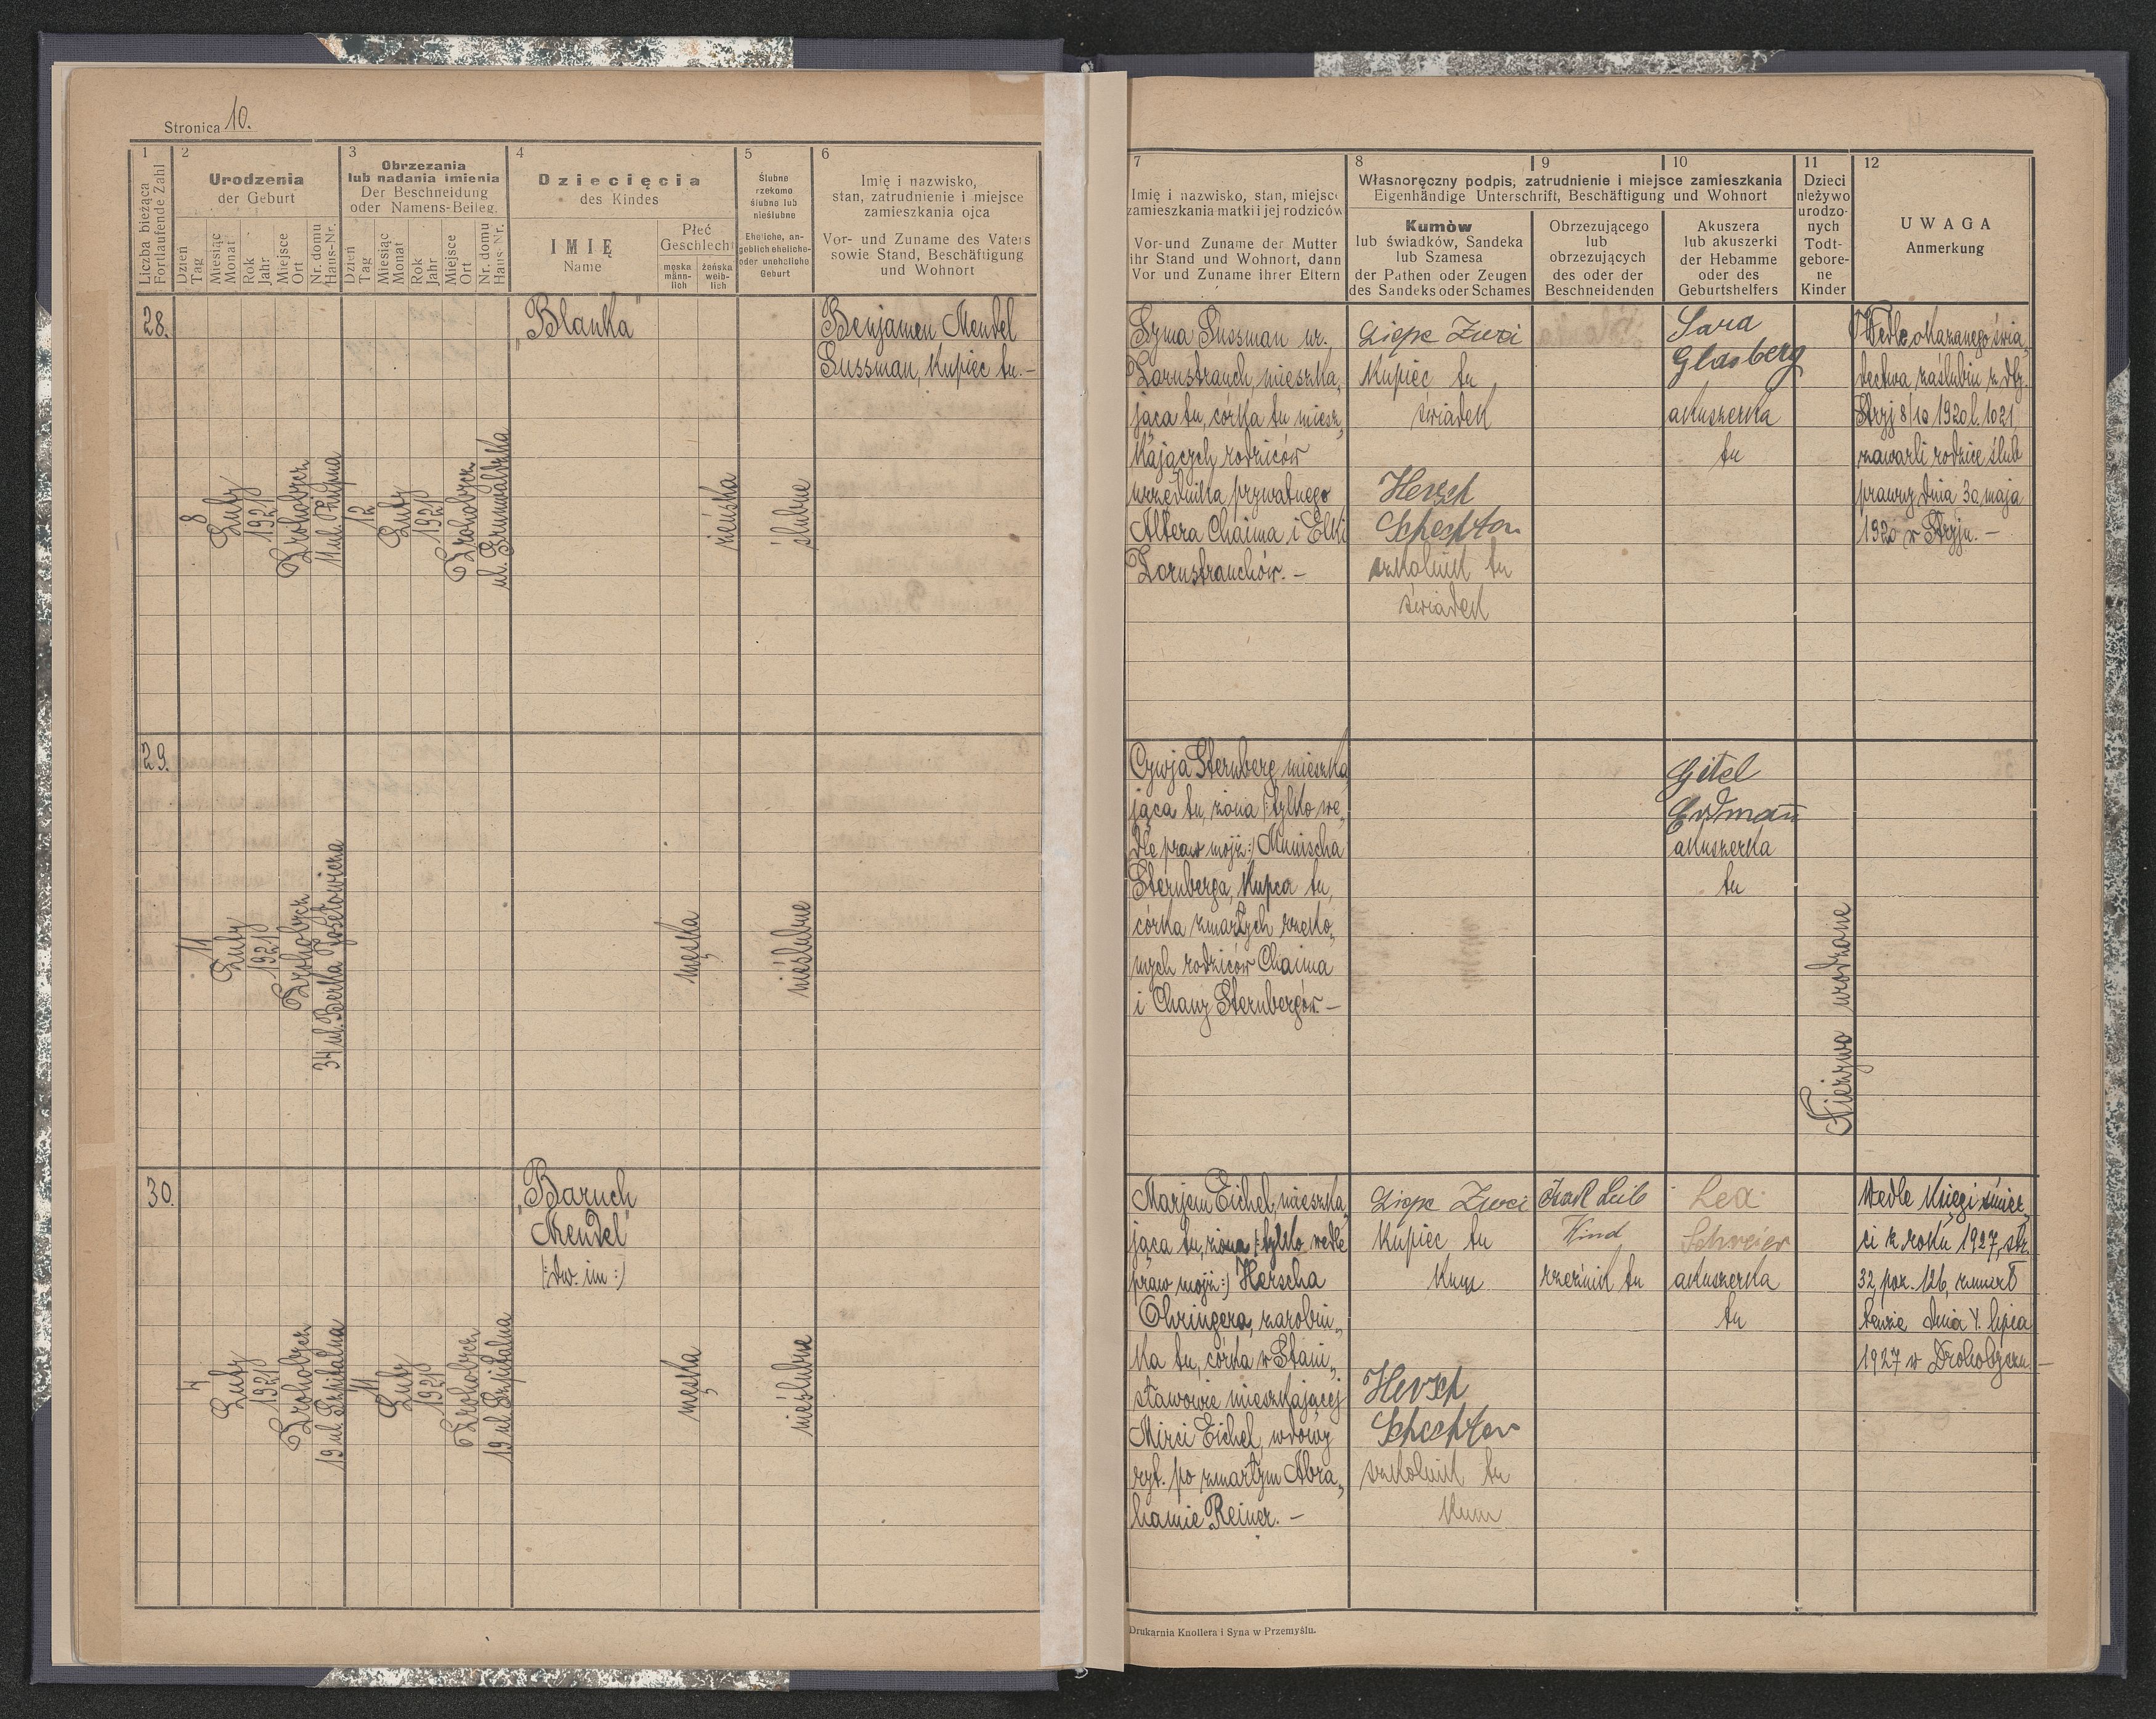 Stronica 10.
1
Liczba bieżąca
Fortlaufende Zahl
2
Urodzenia
der Geburt
Dzień
Tag
Miesiąc
Monat
Rok
Jahr
Miejsce
Ort
Nr. domu
Haus-Nr.
3
Obrzezania
lub nadania imienia
Der Beschneidung
oder Namens-Beileg.
Dzień
Tag
Miesiąc
Monat
Rok
Jahr
Miejsce
Ort
Nr. domu
Haus-Nr.
4
Dziecięcia
des Kindes
IMIĘ
Name
Płeć
Geschlecht
męska
männ-
lich
żeńska
weib-
lich
5
Ślubne
rzekomo
ślubne lub
nieślubne
Eheliche, an-
geblich eheliche-
oder uneheliche
Geburt
6
Imię i nazwisko,
stan, zatrudnienie i miejsce
zamieszkania ojca
Vor- und Zuname des Vaters
sowie Stand, Beschäftigung
und Wohnort
7
Imię i nazwisko, stan, miejsce
zamieszkania matki i jej rodziców
Vor-und Zuname der Mutter
ihr Stand und Wohnort, dann
Vor und Zuname ihrer Eltern
8
9
10
Własnoręczny podpis, zatrudnienie i miejsce zamieszkania
Eigenhändige Unterschrift, Beschäftigung und Wohnort
Kumów
lub świadków, Sandeka
lub Szamesa
der Pathen oder Zeugen
des Sandeks oder Schames
Obrzezującego
lub
obrzezujących
des oder der
Beschneidenden
Akuszera
lub akuszerki
der Hebamme
oder des
Geburtshelfers
11
Dzieci
nieżywo
urodzo-
nych
Todt-
gebore-
ne
Kinder
12
UWAGA
Anmerkung
28.
8
Luty
1921
Drohobycz
11 ul. Liśpna
12
Luty
1921
Drohobycz
ul. Grunwaldzka
"Blanka"
żeńska
ślubne
Benjamen Mendel
Sussman, kupiec tu. -
Syma Sussman ur.
Dornstrauch mieszka„
jąca tu, córka tu miesz„
kających rodziców
urzędnika prywatnego
Altera Chaima i Elki
Dornstrauchów. -
Ziepe Zwei
kupiec tu
świadek
Hersch
Schechter
szkolnik tu
świadek
Sara
Glasberg
akuszerka
tu
Wedle okazanego świa„
dectwa zaślubin z dty.
Stryj 8/10 1920 l. 1021
zawarli rodzice ślub
prawny dnia 30 maja
1920 w Stryju. -
29.
11
Luty
1921
Drohobycz
34 ul. Berka Joselowicza
męska
nieślubne
Cywja Sternberg mieszka„
jąca tu, żona /:tylko we„
dle praw mojż:/ Munischa
Sternberga, kupca tu,
córka zmarłych rzeko„
mych rodziców Chaima
i Chany Sternbergów. -
Gitel
Erdmann
akuszerka
tu
Nieżywo urodzone
30.
4
Luty
1921
Drohobycz
19 ul. Szpitalna
11
Luty
1921
Drohobycz
19 ul. Szpitalna
"Baruch
Mendel"
/:dw. im:/
męska
nieślubne
Marjem Eichel, mieszka„
jąca tu, żona /:tylko wedle
praw mojż:/ Herscha
Ohringera, zarobni„
ka tu, córka w Stani„
sławowie mieszkającej
Mirci Eichel, wdowy
ryt. po zmarłym Abra„
hamie Reiner. -
Ziepe Zwei
kupiec tu
kum
Hersch
Schechter
szkolnik tu
kum
Leib
Kind
rzeźnik tu
Lea
Schreier
akuszerka
tu
Wedle księgi śmier„
ci z roku 1927, str.
32, poz. 126, zmarł
tenże dnia 4. lipca
1927 w Drohobyczu. -
Drukarnia Knollera i Syna w Przemyślu.